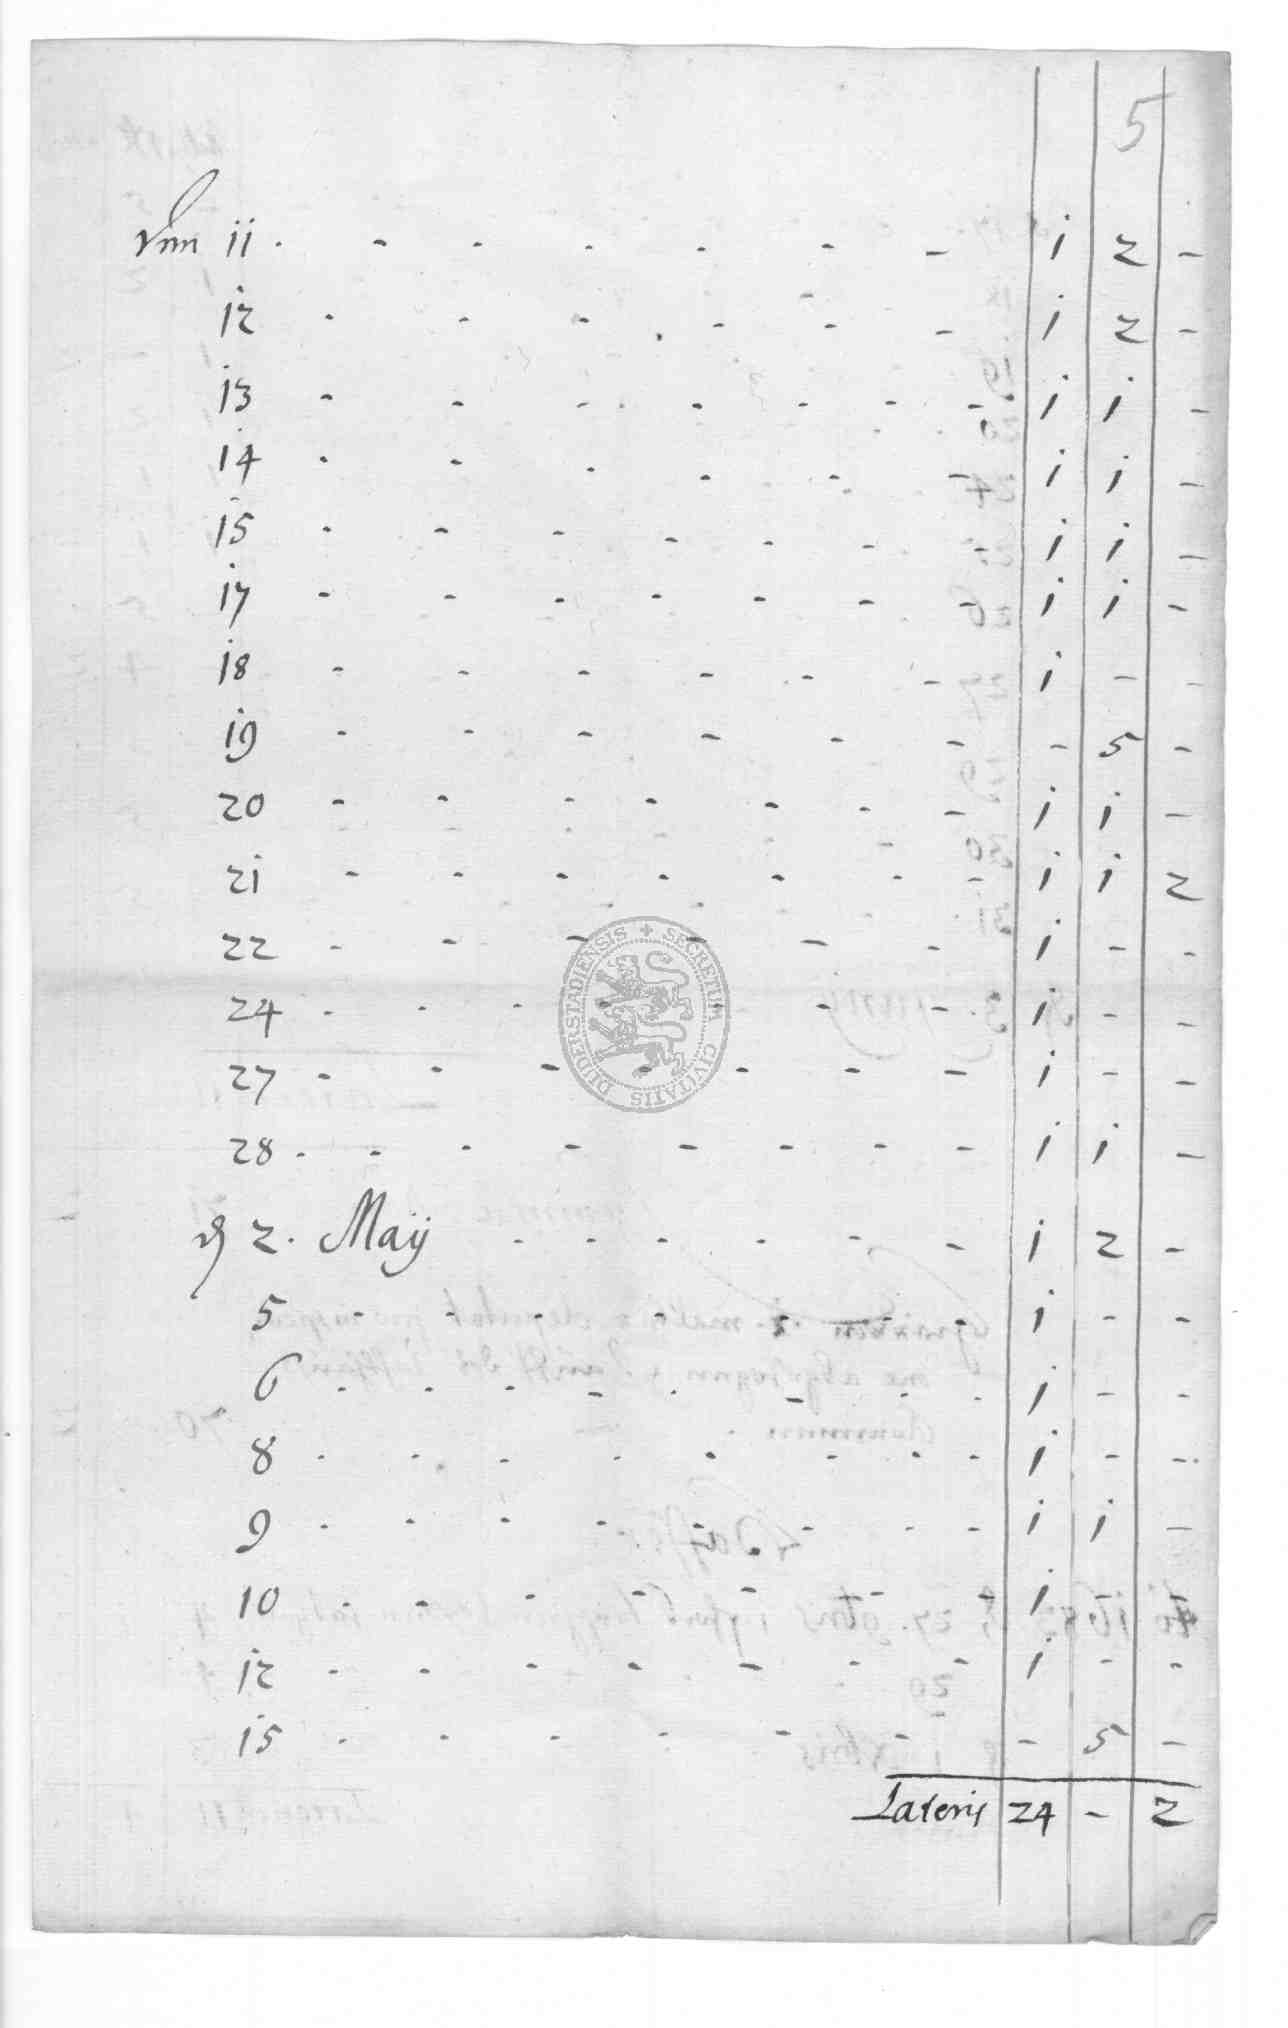 5
ii . - - - - - - i 2 -
12 - - - - - - i 2 -
13 - - - - - - - i i -
14 - - - - - - i i -
15 - - - - - - - i i -
17 - - - - - - - i i -
18 - - - - - - i - -
19 - - - - - - - 5 -
20 - - - - - - - i i -
2i - - - - - - - i i 2
22 - - - - - - i - -
24 - - - - - - - i - -
27 - - - - - - - i - -
28 . - - - - - - - i i -
2. Maÿ - - - - - - i 2 -
5 - - - - - - - i - -
6 - - - - - - - - i - -
8 - - - - - - - - i - -
9 - - - - - - - - i i -
10 - - - - - - - i - -
12 - - - - - - - i - -
15 - - - - - - - 5 -
Lateris 24 - 2
SECRETUM CIVITATIS DUDERSTADIENSIS